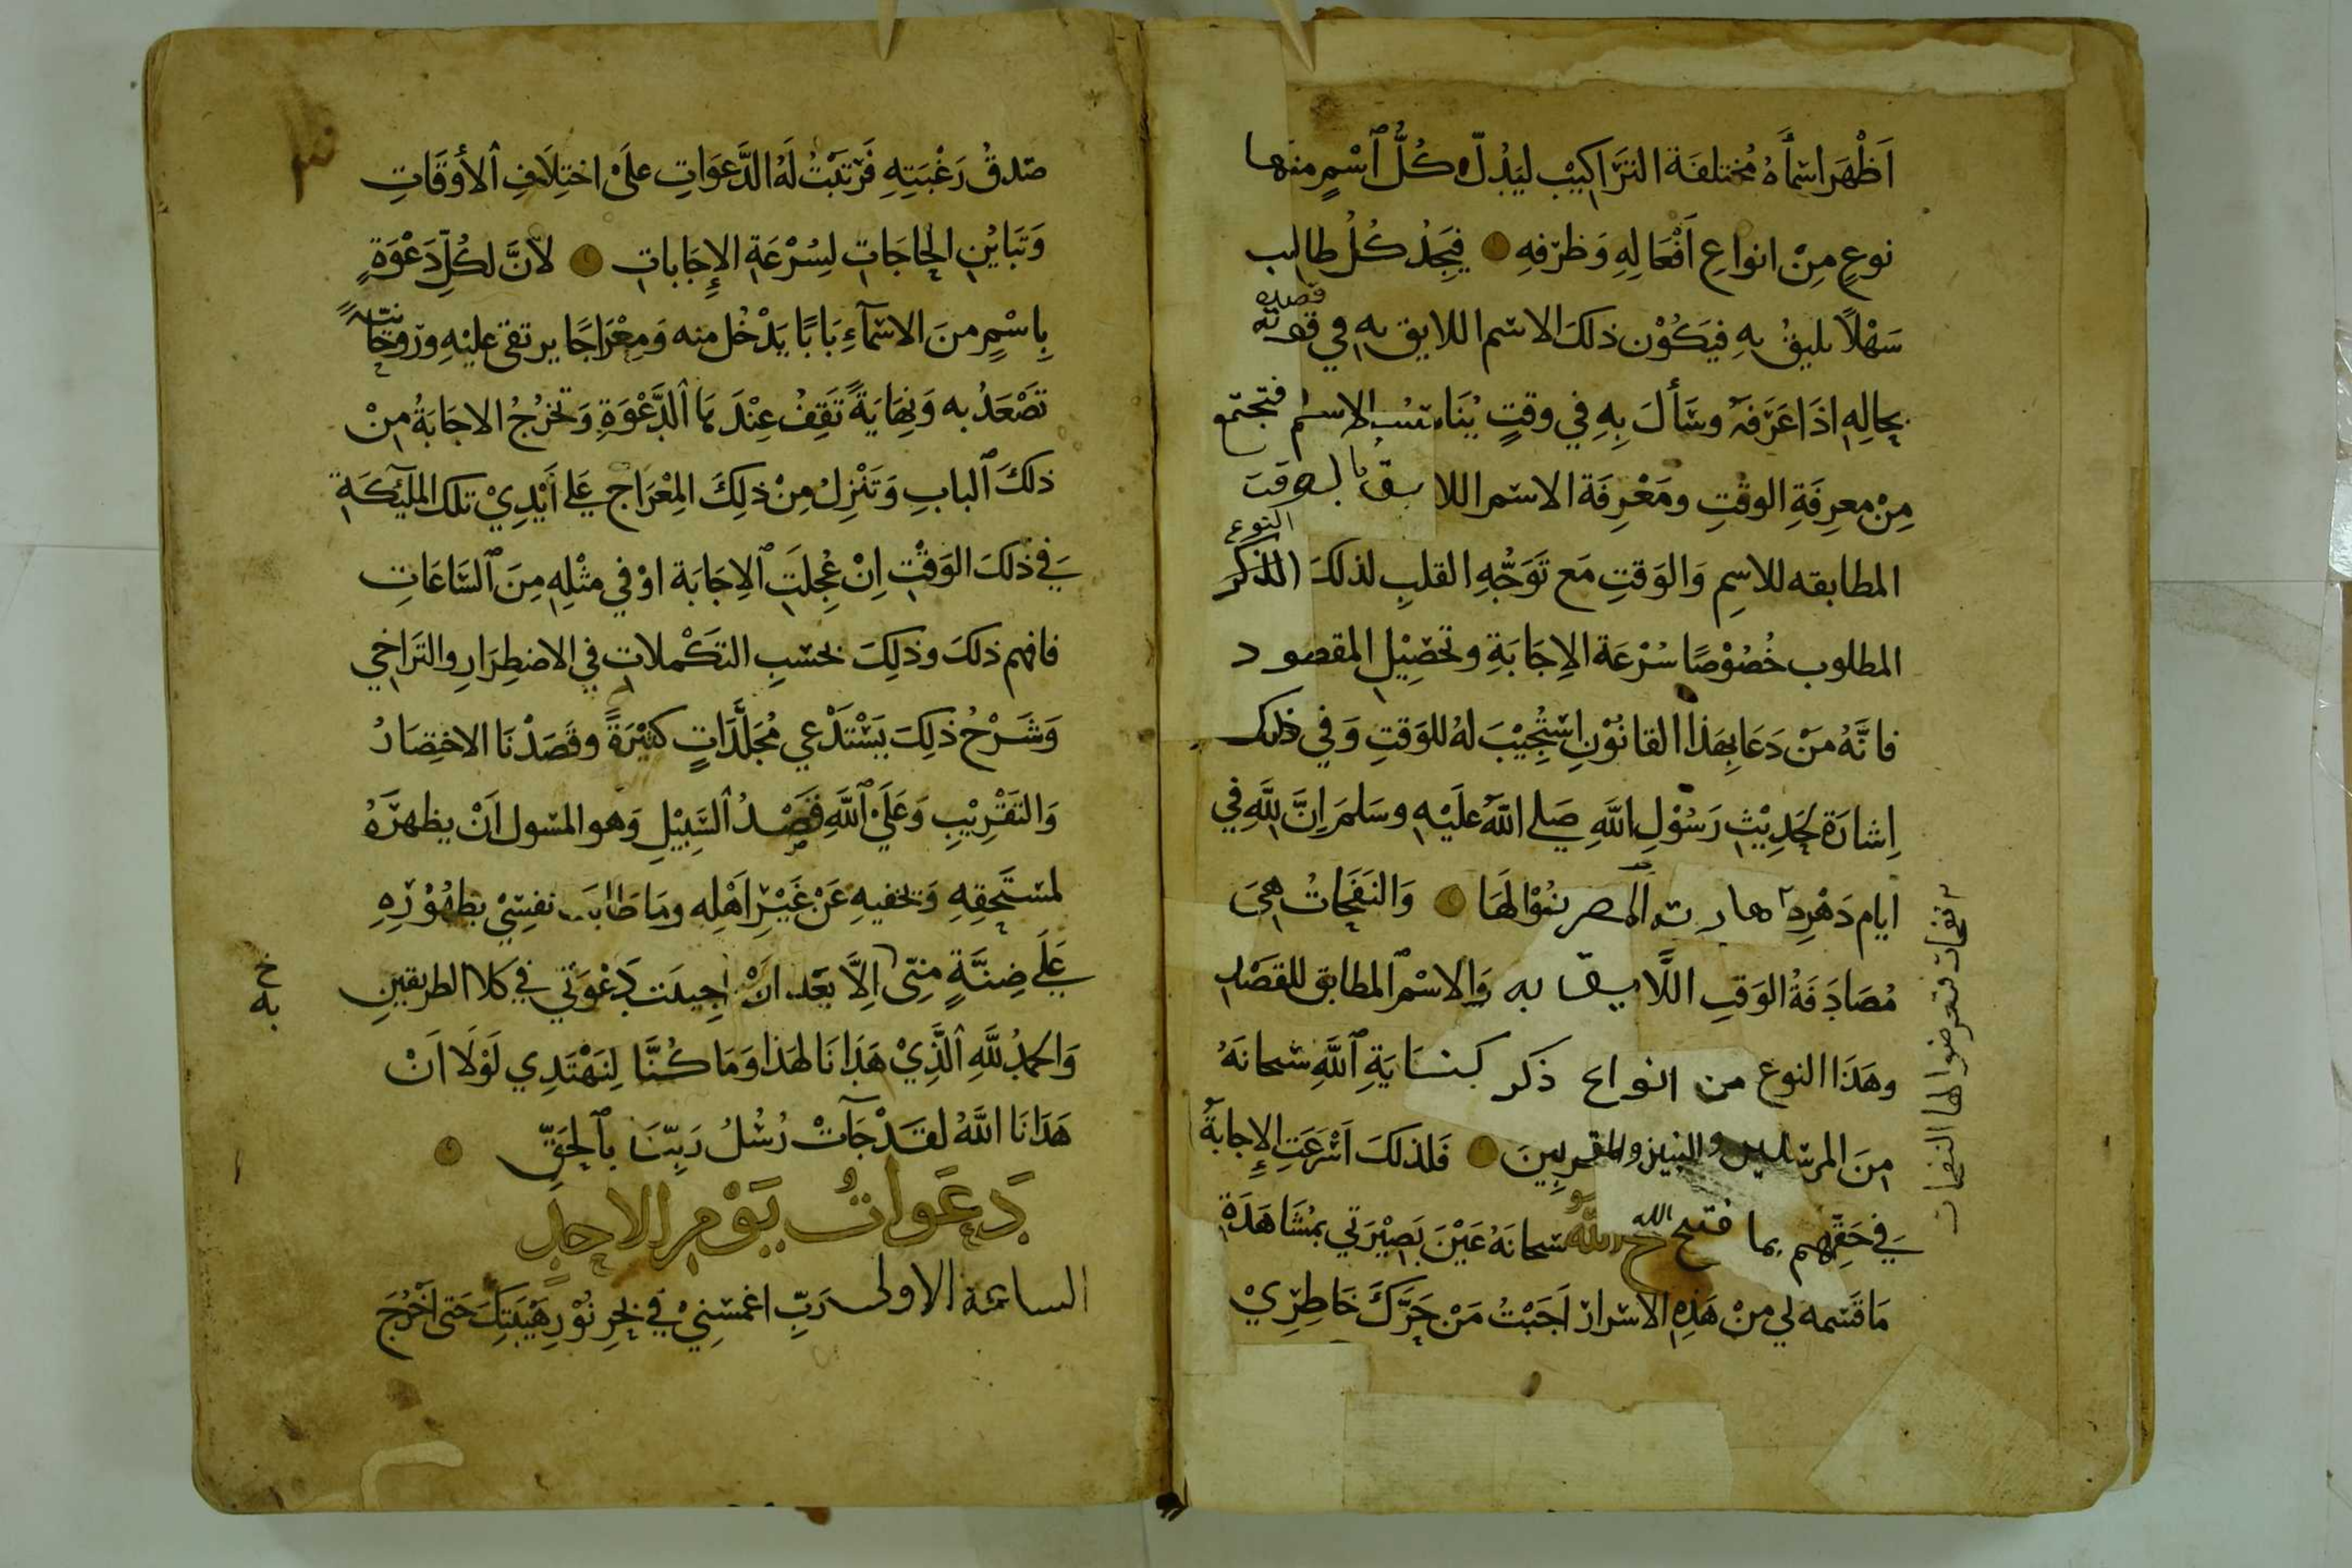 اَظْهَرَ اسْمَاءُ مُختلفَة التَرَاكيْب ليَدُلّ كُلُّ ٱسْمٍ منها
نوعٍ مِنْ انواعِ اَفْعَالِهِ وَظرفهِ فيَجِدُ كُلُ طالب
قصده
سَهْلاً يليقُ بِهِ فيَكُوْن ذلكَ الاسم اللايق به في قوته
بحالِهِ اذَا عَرَفَهُ وسَأَلَ بِهِ في وقتٍ يُنَاسب الاسم فتجتمع
مِنْ معرِفَةِ الوقتِ ومَعْرِفَة الاسم اللايق بالوقت
النوع
المطابقه للاسِمِ وَالوَقتِ مَع تَوَجُّهِ القلبِ لذلكَ الذكر
المطلوب خُصُوْصًا سُرْعَة الاِجَابَةِ وتحصِيْلِ المقصود
فانَّهُ مَنْ دَعَا بِهَذا القانُوْنِ اسْتُجِيْبَ لهُ للوَقتِ وَفي ذلك
اِشارَة لحَدِيْثِ رَسُوْلِ اللَّهِ صَلى اللهُ عَلَيْهِ وسَلمَ اِنَّ لِلَّهِ في
ايام دَهْرِه وَالنَفَحَاتُ هِيَ
مُصَادَفَةُ الوَقتِ اللَّايق به وَالاسْم المطابق للقصْدِ
وهَذَا النوع من انواع ذكر اللَّهِ سبحانَهُ
مِنَ المرسلين والنبيين والمقربِينَ فَلذلكَ اَسْرَعَتِ الإجابةُ
في حَقِهِم بما فتح اللهُ سبحانَهُ عَيْنَ بَصِيْرَتي بمُشَاهَدَةِ
مَا قَسمه لي مِنْ هَذِهِ الاسْرار اَجَبْتُ مَنْ حَرَّكَ خَاطِرِيْ
نفحات فتعرضوا لها النفحات
صدقُ رَغْبَتِهِ فَرَتبْتُ لَهُ الدَّعَوَاتِ علَىْ اختِلَافِ ٱلأوقَاتِ
وَتَبَايُنِ الحاجَاتِ لسُرْعَةِ الإِجَاباتِ لاَنَّ لكُلِّ دَعْوَةٍ
بِاسْمٍ منَ الاسمآءِ بَابًا يَدْخُل منه وَمِعْرَاجًا يرتقى عليْهِ وروحَانيّةً
تَصْعَدُ به وَنِهَايَةً تَقِفُ عِنْدَهَا ٱلدَّعْوَةِ وَتخرُجُ الاجَابَةُ مِنْ
ذلكَ ٱلبابِ وَتَنْزِلُ مِنْ ذلِكَ المِعْرَاج عَلى أَيْدِيْ تلك المليكَةِ
في ذلكَ الوَقْتِ اِنْ عُجِلَتِ ٱلاِجَابَة اوْ في مثْلِهِ مِنَ ٱلسَّاعَاتِ
فافهم ذلكَ وذلِكَ بحسَبِ التكْملاتِ في الاضطِرَارِ والتَرَاخي
وَشَرْحُ ذلِكَ يَسْتَدْعي مُجَلَّدَاتٍ كثِيْرَةً وقَصَدْنَا الاختِصَارُ
وَالتقْرِيْبِ وَعَلَى ٱللَّهِ قَصْدُ ٱلسَّبِيْلِ وَهو المسْول اَنْ يظهرَهُ
لمستَحِقِهِ وَيخفيهِ عَنْ غَيْرِ اَهْلِه ومَا طَابَت نفسِيْ بظهُوْرِهِ
عَلَى ضِنَّةٍ مِنّى اِلاَّ بَعْد اَنْ اُجيبَت دَعْوَتي في كلا الطريقينِ
خ
به
وَالحمدُ للَّهِ ٱلَّذِيْ هَدَانَا لهَذَا وَمَا كُنَّا لِنَهْتَدِي لَوْلَا اَنْ
هَدَانَا اللَّهُ لقَدْ جَآتْ رُسُلُ رَبِّنَا بٱلحَقِّ
دَعَوَاتُ يَوْمِ الاحَدِ
الساعة الاولى رَبِّ اغمسْنِيْ في بَحْرِ نُوْرِ هَيْبَتِكَ حَتى اَخرُجَ